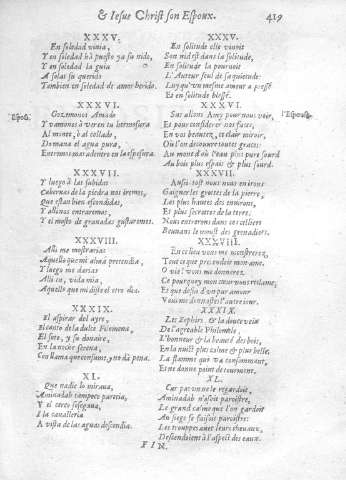 & Iesus Christ son Espoux. 419
XXXV.
En soledad viuia,
Y en soledad hà puesto ya su nido,
Y en soledad la guia
A solas su querido
Tambien en soledad de amor herido.
Espos.
XXXVI.
Gozemonos Amado
Y vamonos à ver en tu hermosura
Al monte, ò al collado,
Do mana el agua pura,
Entremos mas adentro en la espesura.
XXXVII.
Y luego à las subidas
Cabernas de la piedra nos iremos,
Que estan bien escondidas,
Y alli nos entraremos,
Y el mosto de granadas gustaremos.
XXXVIII.
Alli me mostrarias
Aquello que mi alma pretendia,
Y luego me darias
Alli tu, vida mia,
Aquello que me diste el otro dia.
XXXIX.
El aspirar del ayre,
El canto de la dulce Filomena,
El soto, y su donaire,
En la noche serena,
Con llama que consume, y no dà pena.
XL.
Que nadie lo miraua,
Aminadab tampoco parecia,
Y el cerco sosegaua,
I la caualleria
A vista de las aguas descendia.
XXXV.
En solitude elle viuoit
Son nid est dans la solitude,
En solitude la pouruoit
L'Auteur seul de sa quietude:
Luy qu'vn mesme amour a pressé
Et en solitude blessé.
l'Espouse
XXXVI.
Sus allons Amy pour nous voir,
Et pour considerer nos faces,
En vos beautez, ce clair miroir,
Où l'on decouure toutes graces:
Au mont d'où l'eau plus pure sourd
Au bois plus espais & plus sourd.
XXXVII.
Aussi tost nous nous en irons
Gaigner les grottes de la pierre,
Les plus hautes des enuirons,
Et plus secretes de la terre,
Nous entrerons dans ces celliers
Beuuans le moust des grenadiers.
XXXVIII.
En ce lieu vous me monstrerez,
Tout ce que pretendoit mon ame,
O vie! vous me donnerez
Ce pourquoy mon cœur vous reclame;
Et que desia d'vn pur amour
Vous me donnastes l'autre iour.
XXXIX.
Les Zephirs, & la douce voix
De l'agreable Philomele,
L'honneur & la beauté des bois,
En la nuict plus calme & plus belle,
La flamme qui va consommant,
Et ne donne point de tourment.
XL.
Car pas vn ne le regardoit,
Aminadab n'osoit paroistre,
Le grand calme que l'on gardoit
Au siege se faisoit paroistre:
Les trouppes auec leurs cheuaux,
Descendoient à l'aspect des eaux.
FIN.